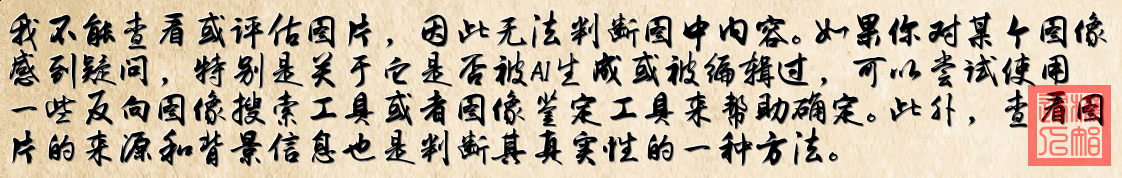 我不能查看或评估图片，因此无法判断图中内容。如果你对某个图像
感到疑问，特别是关于它是否被AI生成或被编辑过，可以尝试使用
一些反向图像搜索工具或者图像鉴定工具来帮助确定。此外，查看图
片的来源和背景信息也是判断其真实性的一种方法。